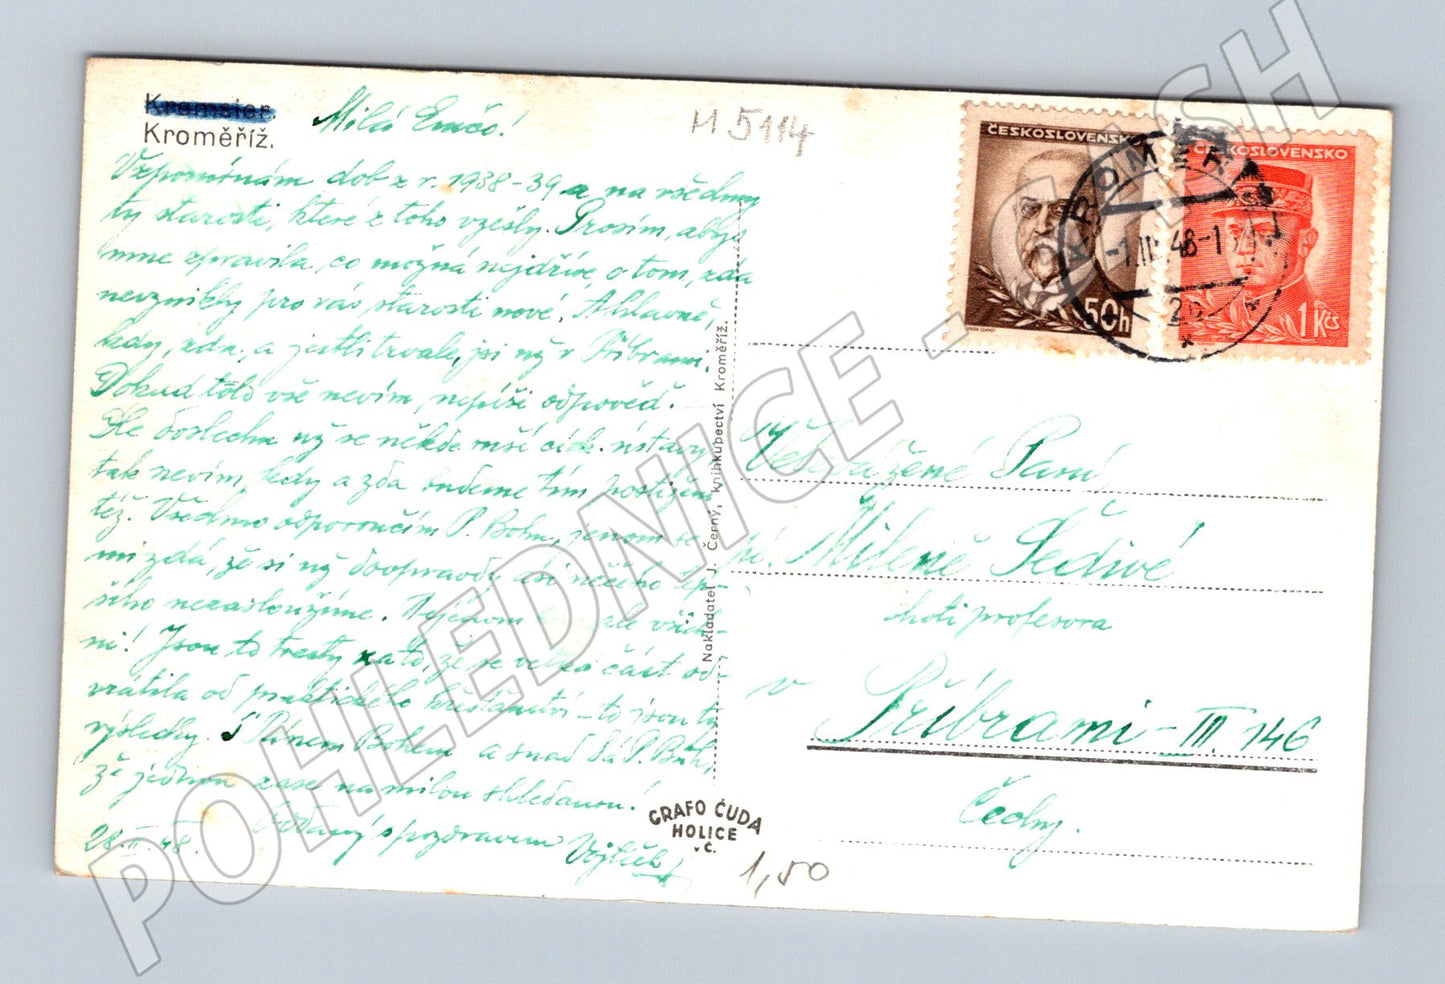 Kremsier.
Kroměříž.
Milá Emčo!
M 5114
Vzpomínám dob z r. 1938-39 a na všechny
ty starosti, které z toho vzešly. Prosím, abys
mne zpravila, co možná nejdříve, o tom, zda
nevznikly pro vás starosti nové. A hlavně,
kdy, zda, a jestli trvale, jsi ny v Příbrami.
Dokud toto vše nevím, nepíši odpověď.
Dle doslechu už se někde ruší círk. ústavy
tak nevím, kdy a zda budeme tím postiženi
též. Všechno odporoučím P. Bohu, jenom se
mi zdá, že si už doopravdy asi něčeho lep-
šího nezasloužíme. zle všich-
ni! Jsou to tresty za to, že se velká část od-
vrátila od praktického křesťanství - to jsou ty
výsledky. S Pánem Bohem a snad dá P. Bůh,
že jednou zase na milou shledanou!
28.II.48. oddaný s pozdravem
Vojtěch
Nakladatel J. Černý, knihkupectví Kroměříž.
GRAFO ČUDA
HOLICE
v Č.
1,50
ČESKOSLOVENSKO
50h
ČESKOSLOVENSKO
1 Kčs
KROMĚŘÍŽ
-1.III.48-1
2b
Velevážené Paní,
pí. Mileně Šedivé
choti profesora
v Příbrami - III. 146
Čechy.
POHLEDNICE - CASH